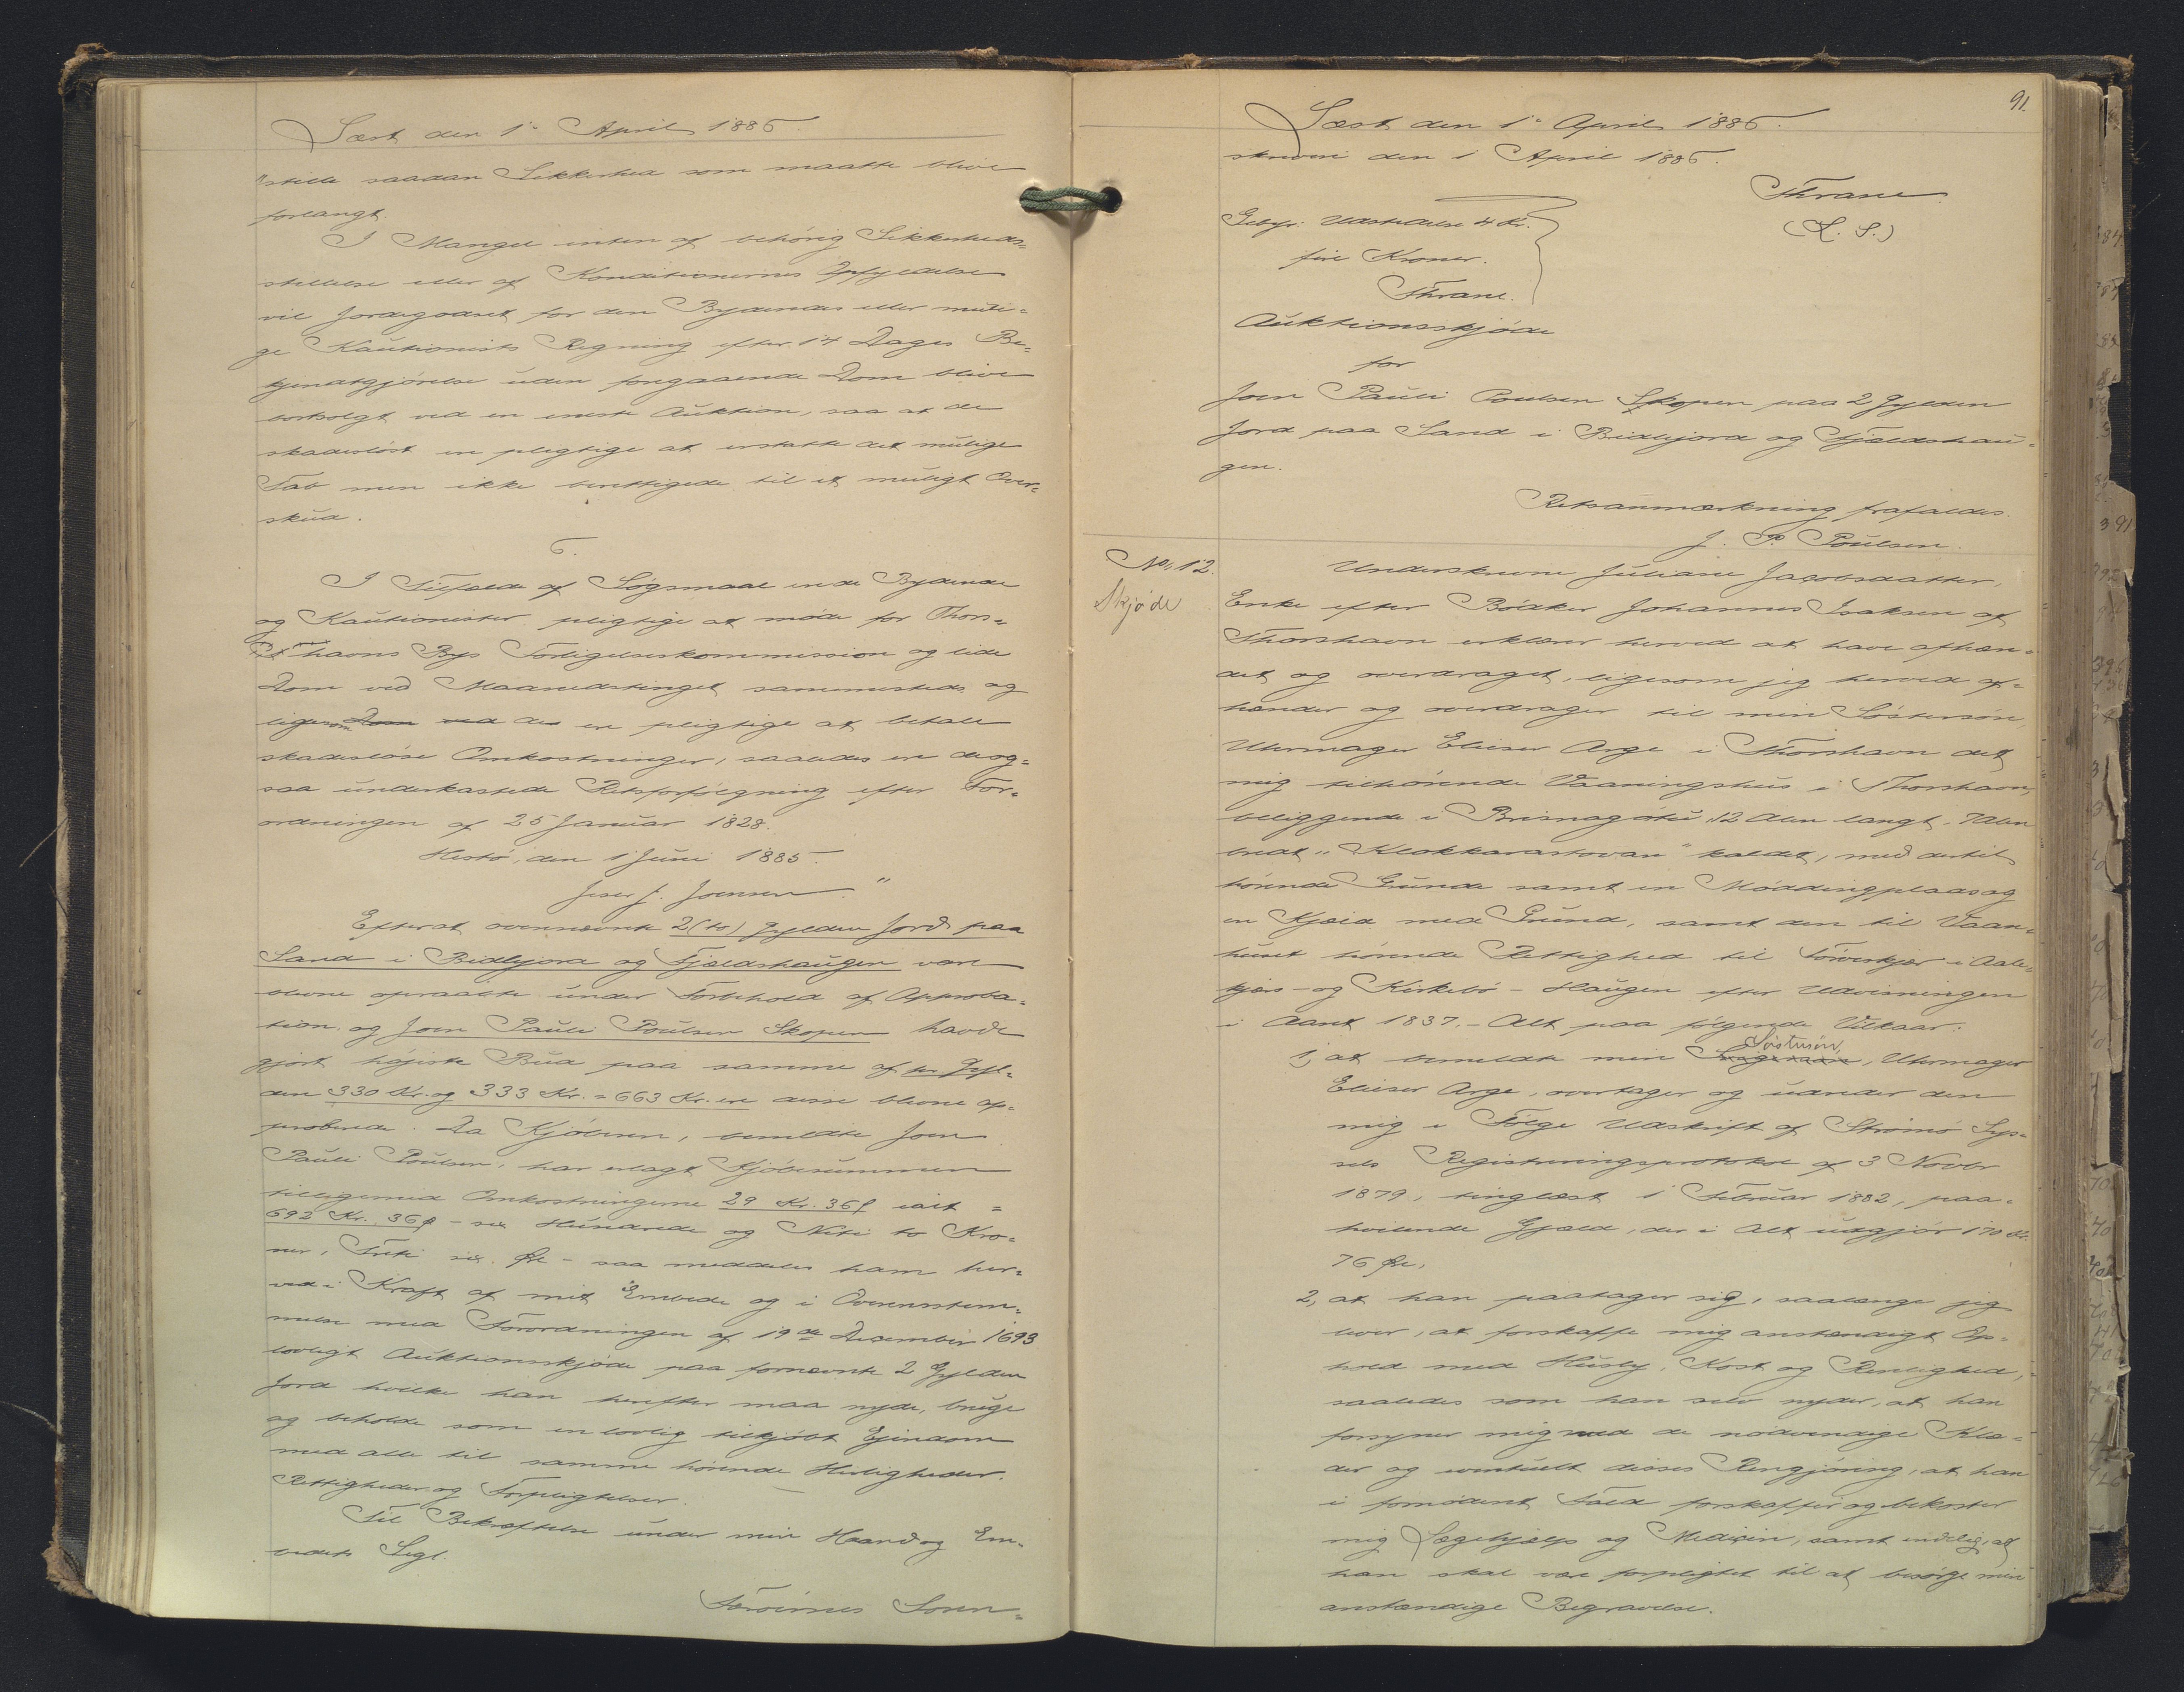 Læst den 1ᵉ April 1886.
stille saadan Sikkerhed som maatte blive
forlangt.
I Mangel enten af behörig Sikkerheds=
stillelse eller af Konditionernes Opfyldelse
vil Jordegodset for den Bydendes eller muli=
ge Kautionists Regning efter 14 Dages Be=
kjendtgjörelse uden foregaaende Dom blive
bortsolgt ved en eneste Auktion, saa at de
skadeslöst ere pligtige at erstatte det mulige
Tab men ikke berettigede til et muligt Over=
skud.
6.
I Tilfælde af Sögsmaal ere de Bydende
og Kautionister pligtige at möde for Thors=
havns Bys Forligelseskommission og lide
Dom ved Maanedstinget sammesteds og
ligesom Dom ved de ere pligtige at betale
skadeslöse Omkostninger, saaledes ere de og=
saa underkastede Retsforfölgning efter For=
ordningen af 25 Januar 1828.
Hestö, den 1 Juni 1885.
Joen J. Joensen."
Efterat ovennævnte 2 (to) Gylden Jord paa
Sand i Bidlsjord og Fjældshaugen vare
blevne opraabte under Forbehold af Approba=
tion, og Joen Pauli Poulsen Skopen havde
gjort höjeste Bud paa samme af pr. Gyl=
den 330 Kr. og 333 Kr. = 663 Kr. ere disse blevne ap=
proberede. Da Kjöberen, bemeldte Joen
Pauli Poulsen, har erlagt Kjöbesummen
tilligemed Omkostningerne 29 Kr. 36 Ø ialt =
692 Kr. 36 Ø - sex Hundrede og Niti to Kro=
ner, Treti sex Øre - saa meddeles ham her=
ved i Kraft af mit Embede og i Overensstem=
melse med Forordningen af 19de December 1693
lovligt Auktionsskjöde paa fornævnte 2 Gylden
Jord hvilke han herefter maa nyde, bruge
og beholde som en lovlig tilkjöbt Ejendom
med alle til samme hörende Herligheder,
Rettigheder og Forpligtelser.
Til Bekræftelse under min Haand og Em=
bedets Segl.
Færöernes Soren=
91.
Læst den 1ᵉ April 1886.
skriveri den 1 April 1886.
Thrane
(L. S.)
Gebyr: Udstedelse 4 Kr.
fire Kroner.
Thrane.
Auktionsskjöde
for
Joen Pauli Poulsen Skopen paa 2 Gylden
Jord paa Sand i Bidlsjord og Fjældshau=
gen.
Retsanmærkning frafaldes.
J. P. Poulsen.
No. 12.
Skjöde
Underskrevne Juliane Jacobsdatter,
Enke efter Bödker Johannes Isaksen af
Thorshavn erklærer herved at have afhæn=
det og overdraget, ligesom jeg herved af=
hænder og overdrager til min Söstersön,
Uhrmager Elieser Arge i Thorshavn det
mig tilhörende Vaaningshus i Thorshavn,
beliggende i Bringsnagötu, 12 Alen langt, 7 Alen
bredt "Klokkarastovan" kaldet, med dertil
hörende Grunde samt en Möddingplads og
en Kjæld med Grund, samt den til Vaan=
huset hörende Rettighed til Törveskjær i Aale=
kjærs- og Kirkebö- Haugen efter Udvisningen
i Aaret 1837. - Alt paa fölgende Vilkaar:
1, at bemeldte min Söstersön, Uhrmager
Elieser Arge, overtager og udreder den
mig i Fölge Udskrift af Strömö Sys=
sels Registreringsprotokol af 3 Novbr
1879, tinglæst 1 Februar 1882, paa=
hvilende Gjæld, der i Alt udgjör 170 Kr.
76 Øre,
2, at han paatager sig, saalænge jeg
lever, at forskaffe mig anstændigt Op=
hold med Husly, Kost og Renlighed,
saaledes som han selv nyder, at han
forsyner mig med de nödvendige Klæ=
der og eventuelt disses Rengjöring, at han
i fornödent Fald forskaffer og bekoster
mig Lægehjælp og Medicin, samt endelig, at
han skal være forpligtet til at besörge min
anstændige Begravelse.